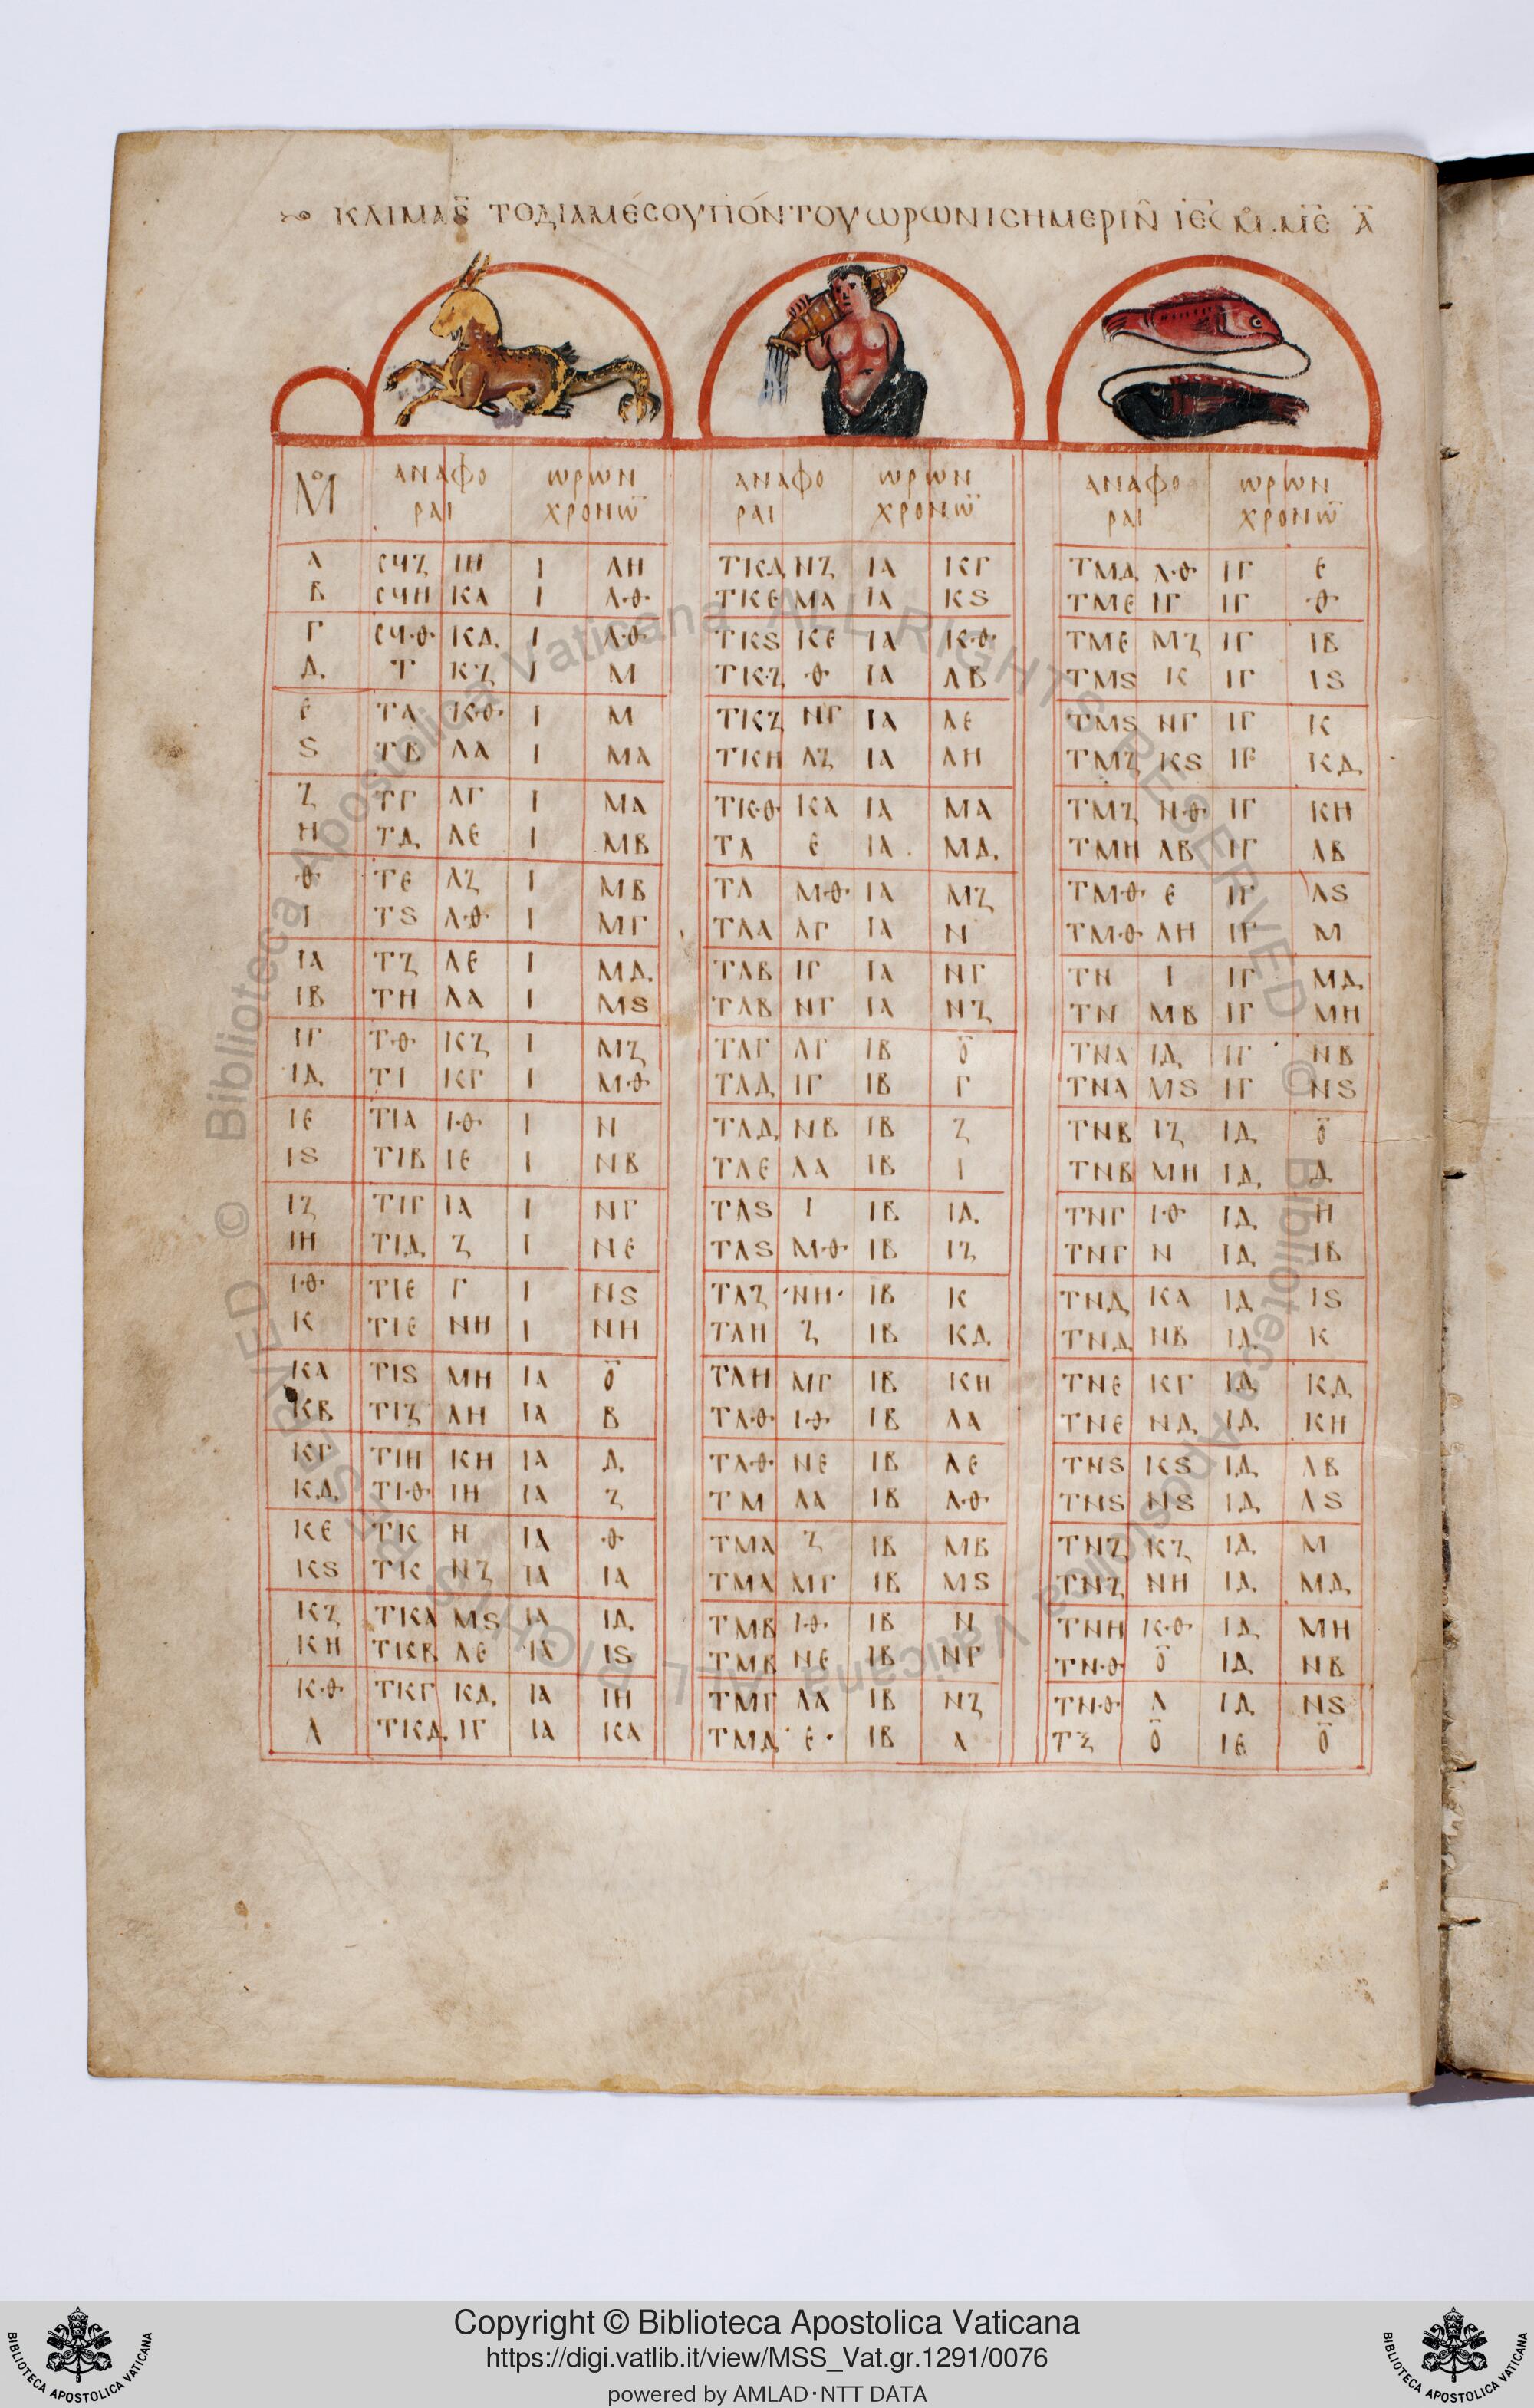 ΚΛΙΜΑ Ϛ ΤΟ ΔΙΑ ΜΈCΟΥ ΠΌΝΤΟΥ ωΡωΝ ΙCΗΜΕΡΙΝ ΙΕ Μ ΜΕ Α
Μ ΑΝΑΦΟΡΑΙ ωΡωΝ ΧΡΟΝω ΑΝΑΦΟΡΑΙ ωΡωΝ ΧΡΟΝω ΑΝΑΦΟΡΑΙ ωΡωΝ ΧΡΟΝω
Α CϞΖ ΙΗ Ι ΛΗ ΤΚΔ ΝΖ ΙΑ ΚΓ ΤΜΔ ΛΘ ΙΓ Ε
Β CϞΗ ΚΑ Ι ΛΘ ΤΚΕ ΜΑ ΙΑ ΚϚ ΤΜΕ ΙΓ ΙΓ Θ
Γ CϞΘ ΚΔ Ι ΛΘ ΤΚϚ ΚΕ ΙΑ ΚΘ ΤΜΕ ΜΖ ΙΓ ΙΒ
Δ Τ ΚΖ Ι Μ ΤΚΖ Θ ΙΑ ΛΒ ΤΜϚ Κ ΙΓ ΙϚ
Ε ΤΑ ΚΘ Ι Μ ΤΚΖ ΝΓ ΙΑ ΛΕ ΤΜϚ ΝΓ ΙΓ Κ
Ϛ ΤΒ ΛΑ Ι ΜΑ ΤΚΗ ΛΖ ΙΑ ΛΗ ΤΜΖ ΚϚ ΙΓ ΚΔ
Ζ ΤΓ ΛΓ Ι ΜΑ ΤΚΘ ΚΑ ΙΑ ΜΑ ΤΜΖ ΝΘ ΙΓ ΚΗ
Η ΤΔ ΛΕ Ι ΜΒ ΤΛ Ε ΙΑ ΜΔ ΤΜΗ ΛΒ ΙΓ ΛΒ
Θ ΤΕ ΛΖ Ι ΜΒ ΤΛ ΜΘ ΙΑ ΜΖ ΤΜΘ Ε ΙΓ ΛϚ
Ι ΤϚ ΛΘ Ι ΜΓ ΤΛΑ ΛΓ ΙΑ Ν ΤΜΘ ΛΗ ΙΓ Μ
ΙΑ ΤΖ ΛΕ Ι ΜΔ ΤΛΒ ΙΓ ΙΑ ΝΓ ΤΝ Ι ΙΓ ΜΔ
ΙΒ ΤΗ ΛΑ Ι ΜϚ ΤΛΒ ΝΓ ΙΑ ΝΖ ΤΝ ΜΒ ΙΓ ΜΗ
ΙΓ ΤΘ ΚΖ Ι ΜΖ ΤΛΓ ΛΓ ΙΒ Ο ΤΝΑ ΙΔ ΙΓ ΝΒ
ΙΔ ΤΙ ΚΓ Ι ΜΘ ΤΛΔ ΙΓ ΙΒ Γ ΤΝΑ ΜϚ ΙΓ ΝϚ
ΙΕ ΤΙΑ ΙΘ Ι Ν ΤΛΔ ΝΒ ΙΒ Ζ ΤΝΒ ΙΖ ΙΔ Ο
ΙϚ ΤΙΒ ΙΕ Ι ΝΒ ΤΛΕ ΛΑ ΙΒ Ι ΤΝΒ ΜΗ ΙΔ Δ
ΙΖ ΤΙΓ ΙΑ Ι ΝΓ ΤΛϚ Ι ΙΒ ΙΔ ΤΝΓ ΙΘ ΙΔ Η
ΙΗ ΤΙΔ Ζ Ι ΝΕ ΤΛϚ ΜΘ ΙΒ ΙΖ ΤΝΓ Ν ΙΔ ΙΒ
ΙΘ ΤΙΕ Γ Ι ΝϚ ΤΛΖ ΝΗ ΙΒ Κ ΤΝΔ ΚΑ ΙΔ ΙϚ
Κ ΤΙΕ ΝΗ Ι ΝΗ ΤΛΗ Ζ ΙΒ ΚΔ ΤΝΔ ΝΒ ΙΔ Κ
ΚΑ ΤΙϚ ΜΗ ΙΑ Ο ΤΛΗ ΜΓ ΙΒ ΚΗ ΤΝΕ ΚΓ ΙΔ ΚΔ
ΚΒ ΤΙΖ ΛΗ ΙΑ Β ΤΛΘ ΙΘ ΙΒ ΛΑ ΤΝΕ ΝΔ ΙΔ ΚΗ
ΚΓ ΤΙΗ ΚΗ ΙΑ Δ ΤΛΘ ΝΕ ΙΒ ΛΕ ΤΝϚ ΚϚ ΙΔ ΛΒ
ΚΔ ΤΙΘ ΙΗ ΙΑ Ζ ΤΜ ΛΑ ΙΒ ΛΘ ΤΝϚ ΝϚ ΙΔ ΛϚ
ΚΕ ΤΚ Η ΙΑ Θ ΤΜΑ Ζ ΙΒ ΜΒ ΤΝΖ ΚΖ ΙΔ Μ
ΚϚ ΤΚ ΝΖ ΙΑ ΙΑ ΤΜΑ ΜΓ ΙΒ ΜϚ ΤΝΖ ΝΗ ΙΔ ΜΔ
ΚΖ ΤΚΑ ΜϚ ΙΑ ΙΔ ΤΜΒ ΙΘ ΙΒ Ν ΤΝΗ ΚΘ ΙΔ ΜΗ
ΚΗ ΤΚΒ ΛΕ ΙΑ ΙϚ ΤΜΒ ΝΕ ΙΒ ΝΓ ΤΝΘ Ο ΙΔ ΝΒ
ΚΘ ΤΚΓ ΚΔ ΙΑ ΙΗ ΤΜΓ ΛΑ ΙΒ ΝΖ ΤΝΘ Λ ΙΔ ΝϚ
Λ ΤΚΔ ΙΓ ΙΑ ΚΑ ΤΜΔ Ε ΙΒ Α ΤΞ Ο ΙΕ Ο
© Biblioteca Apostolica Vaticana ALL RIGHTS RESERVED © Biblioteca Apostolica Vaticana ALL RIGHTS RESERVED
Copyright © Biblioteca Apostolica Vaticana
https://digi.vatlib.it/view/MSS_Vat.gr.1291/0076
powered by AMLAD·NTT DATA
BIBLIOTECA APOSTOLICA VATICANA
BIBLIOTECA APOSTOLICA VATICANA